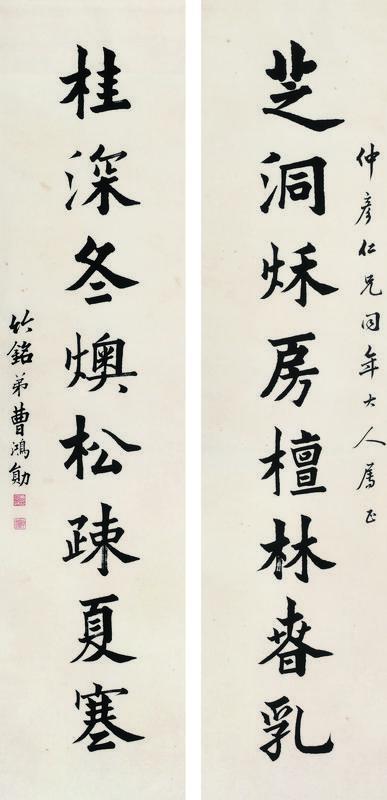 仲彦仁兄同年大人属正
芝洞秌房檀林春乳
桂深冬燠松疎夏寒
竹銘弟曹鴻勛